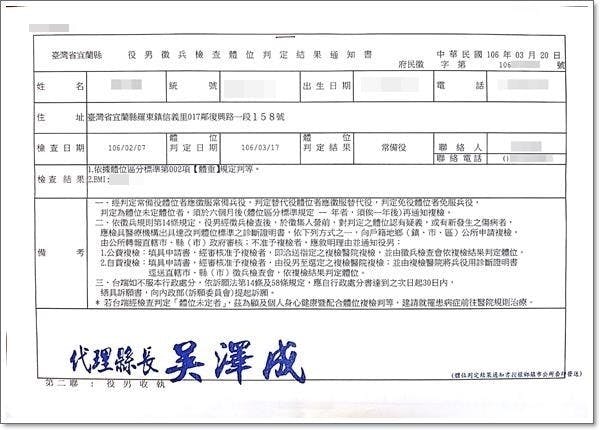 臺灣省宜蘭縣 役男徵兵檢查體位判定結果通知書 中華民國 106年 03月 20日
府民徵 字 第 106
姓名 統號 出生日期 電話
住址 臺灣省宜蘭縣羅東鎮信義里017鄰復興路一段158號
檢查日期 106/02/07 體位判定日期 106/03/17 體位判定結果 常備役 聯絡人
聯絡電話 ()
檢查結果 1.依據體位區分標準第002項【體重】規定判等。
2.BMI:
備考
一、經判定常備役體位者應徵服常備兵役,判定替代役體位者應徵服替代役,判定免役體位者免服兵役,
判定為體位未定體位者,須於六個月後(體位區分標準規定 一年者,須俟一年後)再通知複檢。
二、依徵兵規則第14條規定,役男經徵兵檢查後,於徵集入營前,對判定之體位認有疑義,或有新發生之傷病者,
應檢具醫療機構出具達改判體位標準之診斷證明書,依下列方式之一,向戶籍地鄉(鎮、市、區)公所申請複檢,
由公所轉報直轄市、縣(市)政府審核;不准予複檢者,應敘明理由並通知役男:
1.公費複檢:填具申請書,經審核准予複檢者,即洽送指定之複檢醫院複檢,並由徵兵檢查會依複檢結果判定體位。
2.自費複檢:填具申請書,經審核准予複檢者,由役男至選定之複檢醫院複檢;並由複檢醫院將兵役用診斷證明書
逕送直轄市、縣(市)徵兵檢查會,依複檢結果判定體位。
三、台端如不服本行政處分,依訴願法第14條及58條規定,應自行政處分書達到之次日起30日內,
繕具訴願書,向內政部(訴願委員會)提起訴願。
* 若台端經檢查判定「體位未定者」,茲為顧及個人身心健康暨配合體位複檢判等,建請就罹患病症前往醫院規則治療。
代理縣長 吳澤成
第二聯:役男收執
(體位判定結果通知書於鄉鎮市公所查對發送)